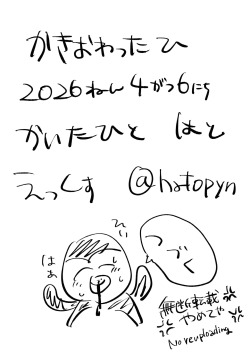 かきおわったひ
2026ねん4がつ6にち
かいたひと はと
えっくす @hatopyn
ひい
はぁ
つづく
無断転載
やめてや
No reuploading